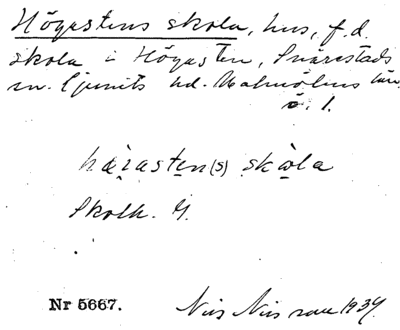 Högastens skola, hus, f.d.
skola i Högasten, Snårestads
sn. Ljunits hd. Malmöhus län
ö. 1.
hǫ̈rasten(s) skọ̀la
Skolk. G.
Nr 5667.
Nils Nilsson 1934.